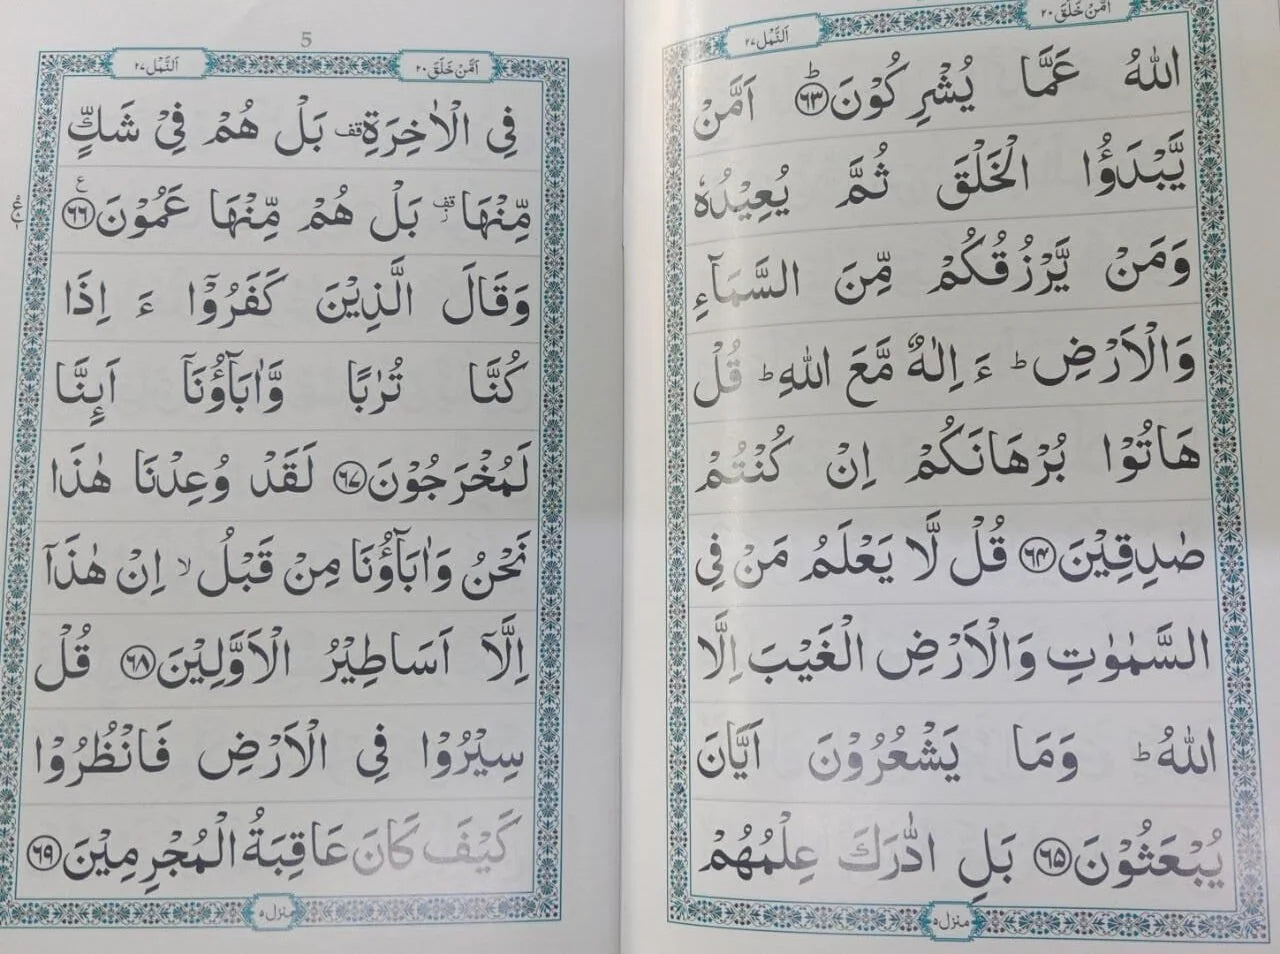 اَمَّنْ خَلَقَ ٢٠
اَلنَّمْل ٢٧
اللّٰهُ عَمَّا يُشْرِكُوْنَؕ ﴿٦٣﴾ اَمَّنْ
يَّبْدَؤُا الْخَلْقَ ثُمَّ يُعِيْدُهٗ
وَمَنْ يَّرْزُقُكُمْ مِّنَ السَّمَآءِ
وَالْاَرْضِؕ ءَ اِلٰهٌ مَّعَ اللّٰهِؕ قُلْ
هَاتُوْا بُرْهَانَكُمْ اِنْ كُنْتُمْ
صٰدِقِيْنَ ﴿٦٤﴾ قُلْ لَّا يَعْلَمُ مَنْ فِى
السَّمٰوٰتِ وَالْاَرْضِ الْغَيْبَ اِلَّا
اللّٰهُؕ وَمَا يَشْعُرُوْنَ اَيَّانَ
يُبْعَثُوْنَ ﴿٦٥﴾ بَلِ ادّٰرَكَ عِلْمُهُمْ
منزل ٥
5
اَمَّنْ خَلَقَ ٢٠
اَلنَّمْل ٢٧
فِى الْاٰخِرَةِ قف بَلْ هُمْ فِىْ شَكٍّ
مِّنْهَا قف ز بَلْ هُمْ مِّنْهَا عَمُوْنَ ع ﴿٦٦﴾
وَقَالَ الَّذِيْنَ كَفَرُوْۤا ءَ اِذَا
كُنَّا تُرٰبًا وَّاٰبَآؤُنَاۤ اَىِٕنَّا
لَمُخْرَجُوْنَ ﴿٦٧﴾ لَقَدْ وُعِدْنَا هٰذَا
نَحْنُ وَاٰبَآؤُنَا مِنْ قَبْلُ ۙ اِنْ هٰذَاۤ
اِلَّاۤ اَسَاطِيْرُ الْاَوَّلِيْنَ ﴿٦٨﴾ قُلْ
سِيْرُوْا فِى الْاَرْضِ فَانْظُرُوْا
كَيْفَ كَانَ عَاقِبَةُ الْمُجْرِمِيْنَ ﴿٦٩﴾
منزل ٥